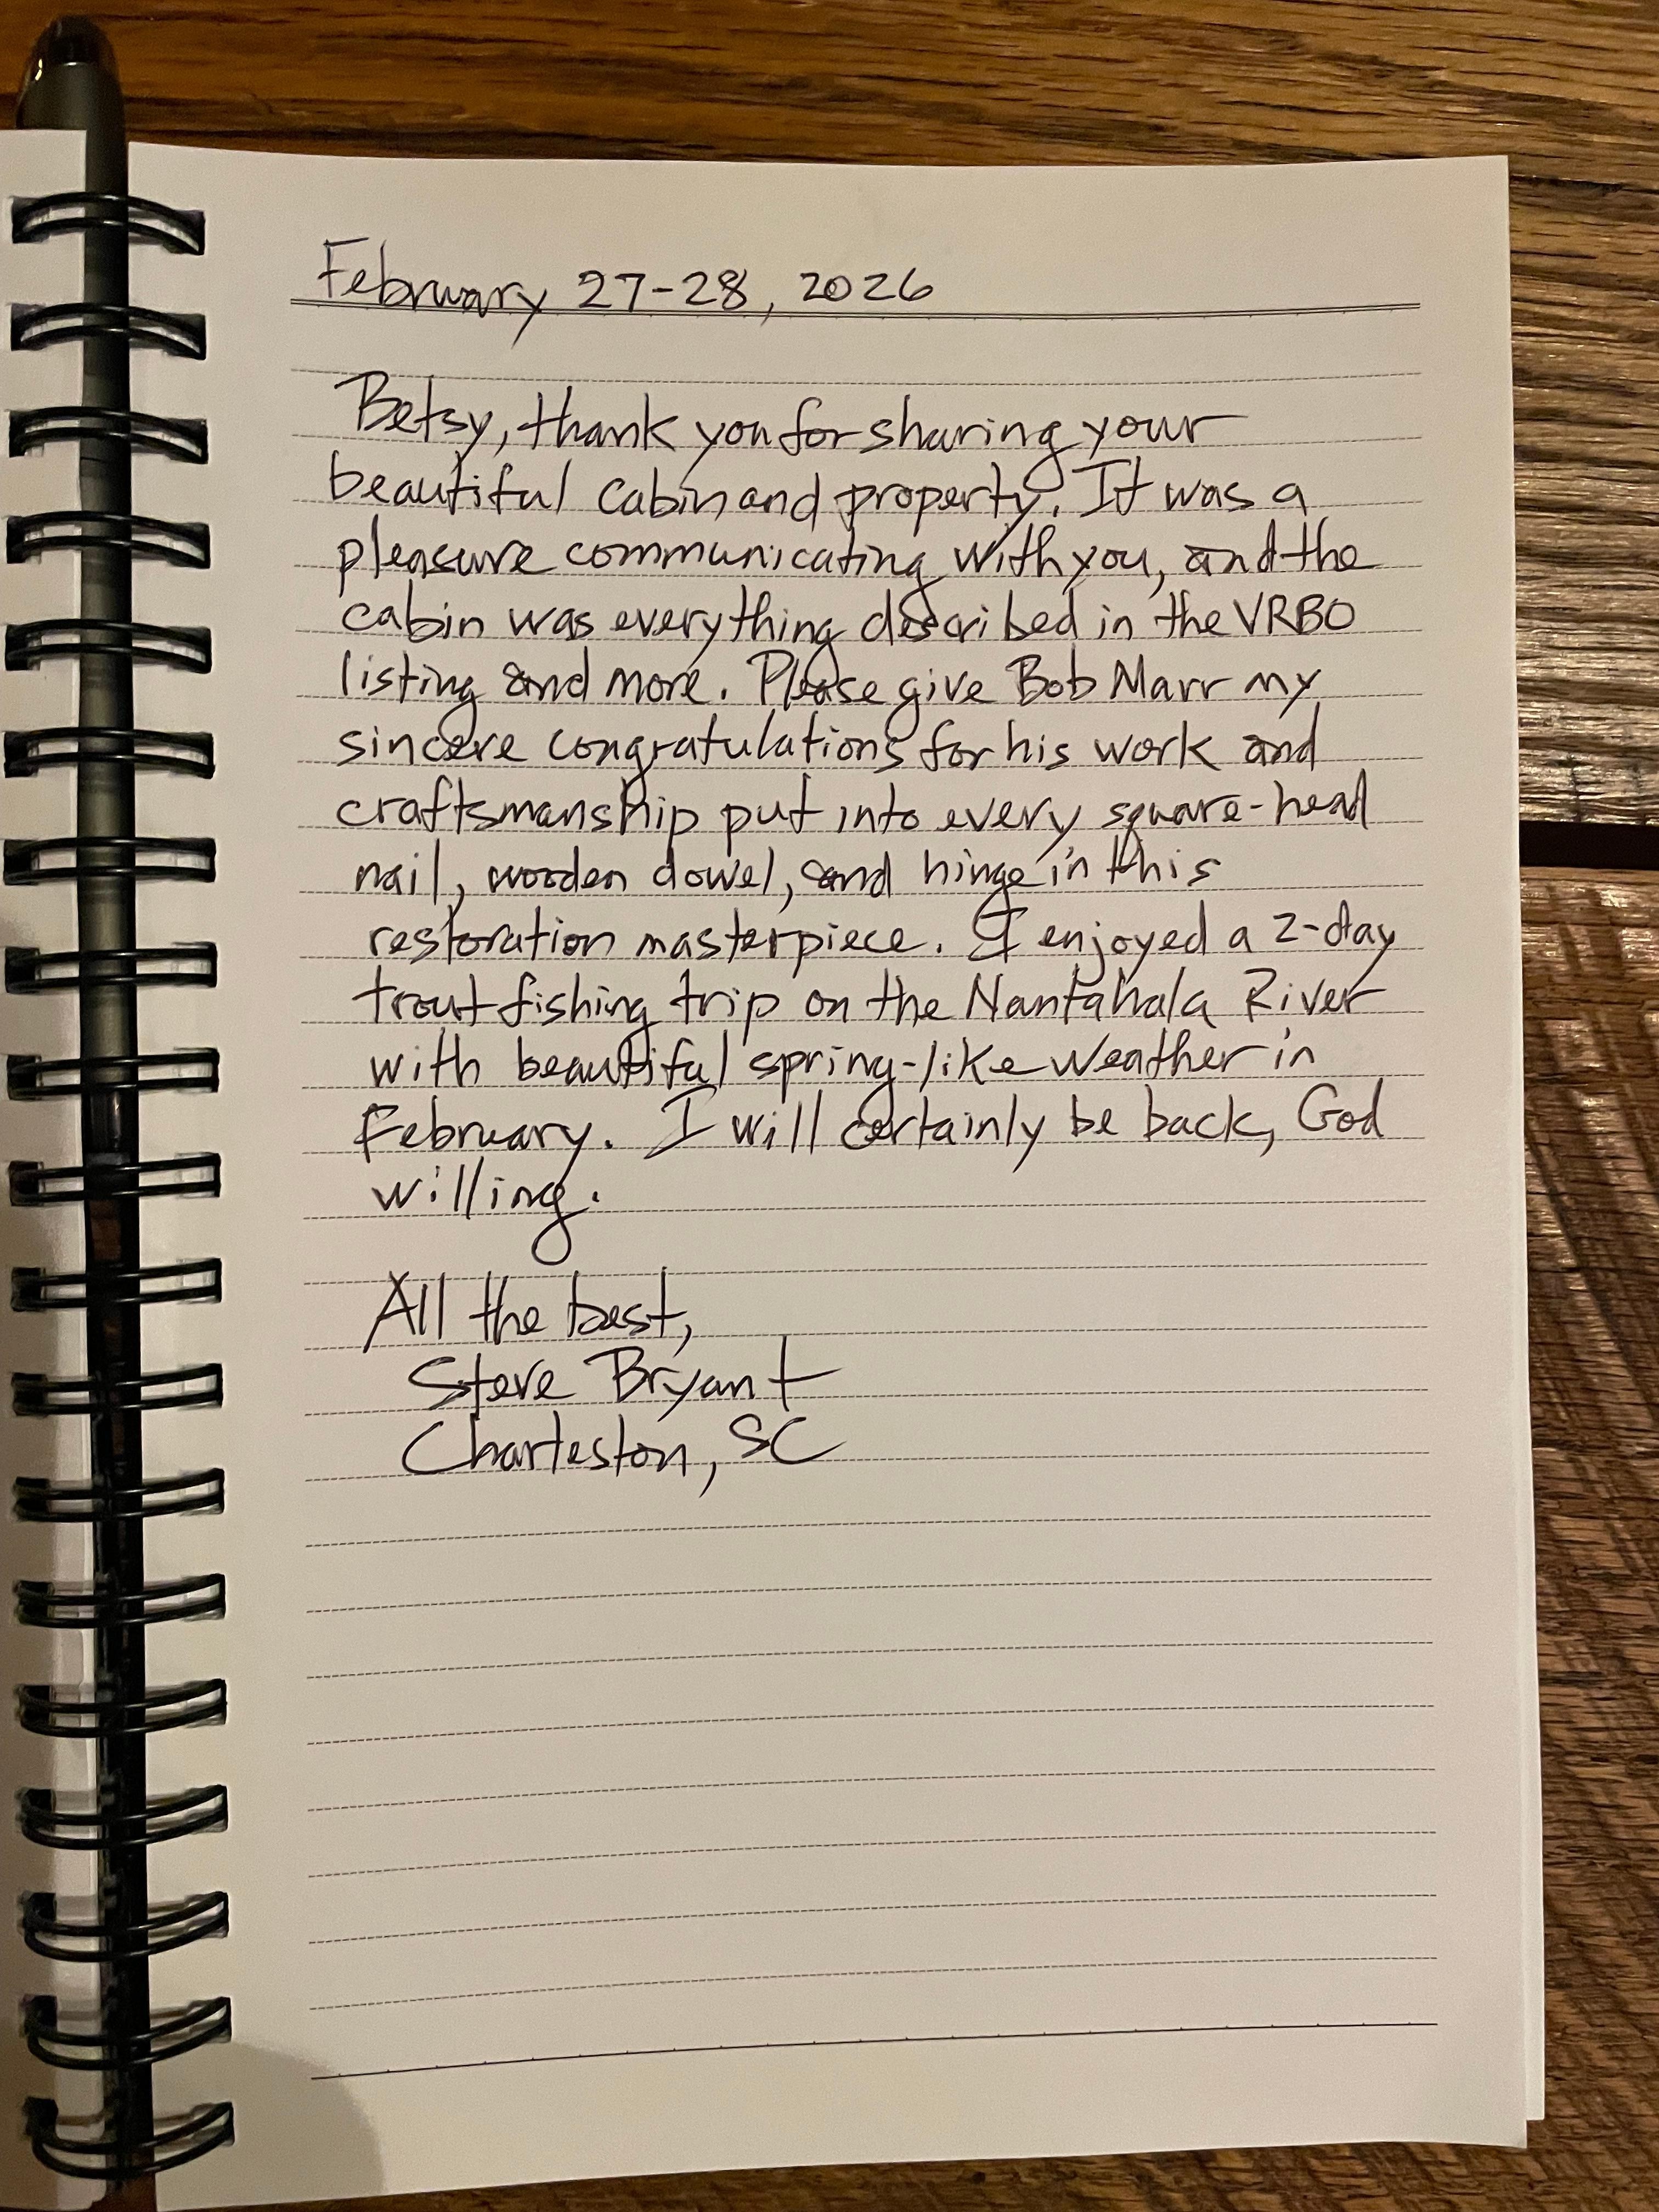 February 27-28, 2026
Betsy, thank you for sharing your
beautiful cabin and property. It was a
pleasure communicating with you, and the
cabin was everything described in the VRBO
listing and more. Please give Bob Marr my
sincere congratulations for his work and
craftsmanship put into every square-head
nail, wooden dowel, and hinge in this
restoration masterpiece. I enjoyed a 2-day
trout fishing trip on the Nantahala River
with beautiful spring-like weather in
February. I will certainly be back, God
willing.
All the best,
Steve Bryant
Charleston, SC